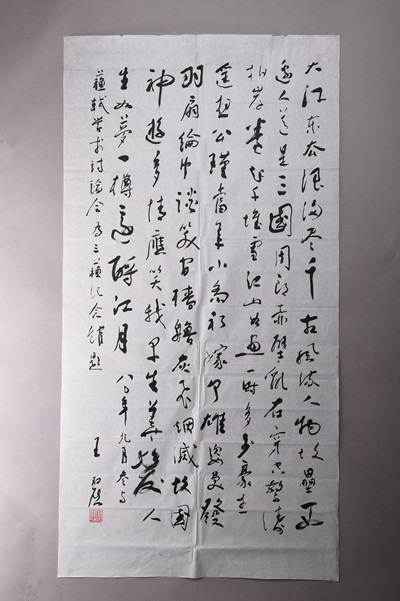 大江东去浪淘尽千古风流人物故垒西
边人道是三国周郎赤壁乱石穿空惊涛
拍岸卷起千堆雪江山如画一时多少豪杰
遥想公瑾当年小乔初嫁了雄姿英发
羽扇纶巾谈笑间樯橹灰飞烟灭故国
神游多情应笑我早生华发人
生如梦一樽还酹江月 八〇年九月参与
苏轼学术讨论会为三苏纪念馆题
王